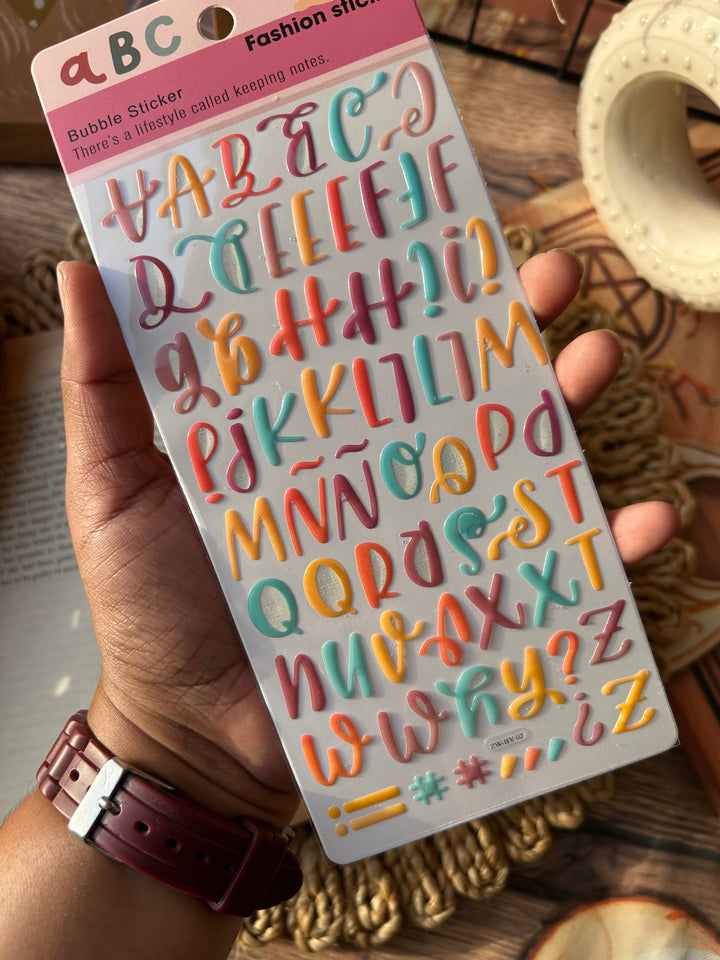 aBC
Fashion stic
Bubble Sticker
There's a lifestyle called keeping notes.
A A B B C C
D D E E E F F F
g g H H ! i !
P j K K L L L L M
M Ñ Ñ O O P P
Q Q R R S S T
n u v v X X T
w w y y ? Z
! ! # # ? Z
ZW-BY-02